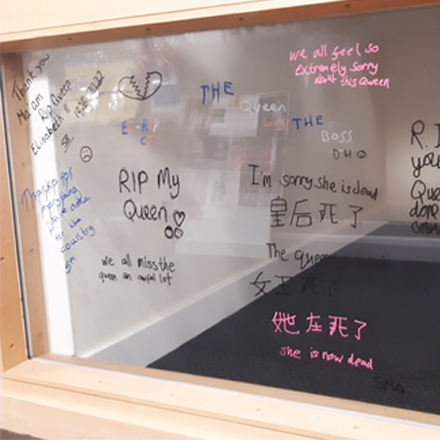 Thank you
Ma'am
Rip Queen
Elizabeth II
1926-2022
THE
Queen
THE
BOSS
we all feel so
Extremely sorry
about this Queen
RIP My
Queen
I'm sorry she is dead
皇后死了
The queen
女王死了
她在死了
she is now dead
we all miss the
queen an awful lot
country
R.I
you
Que
done
SMA